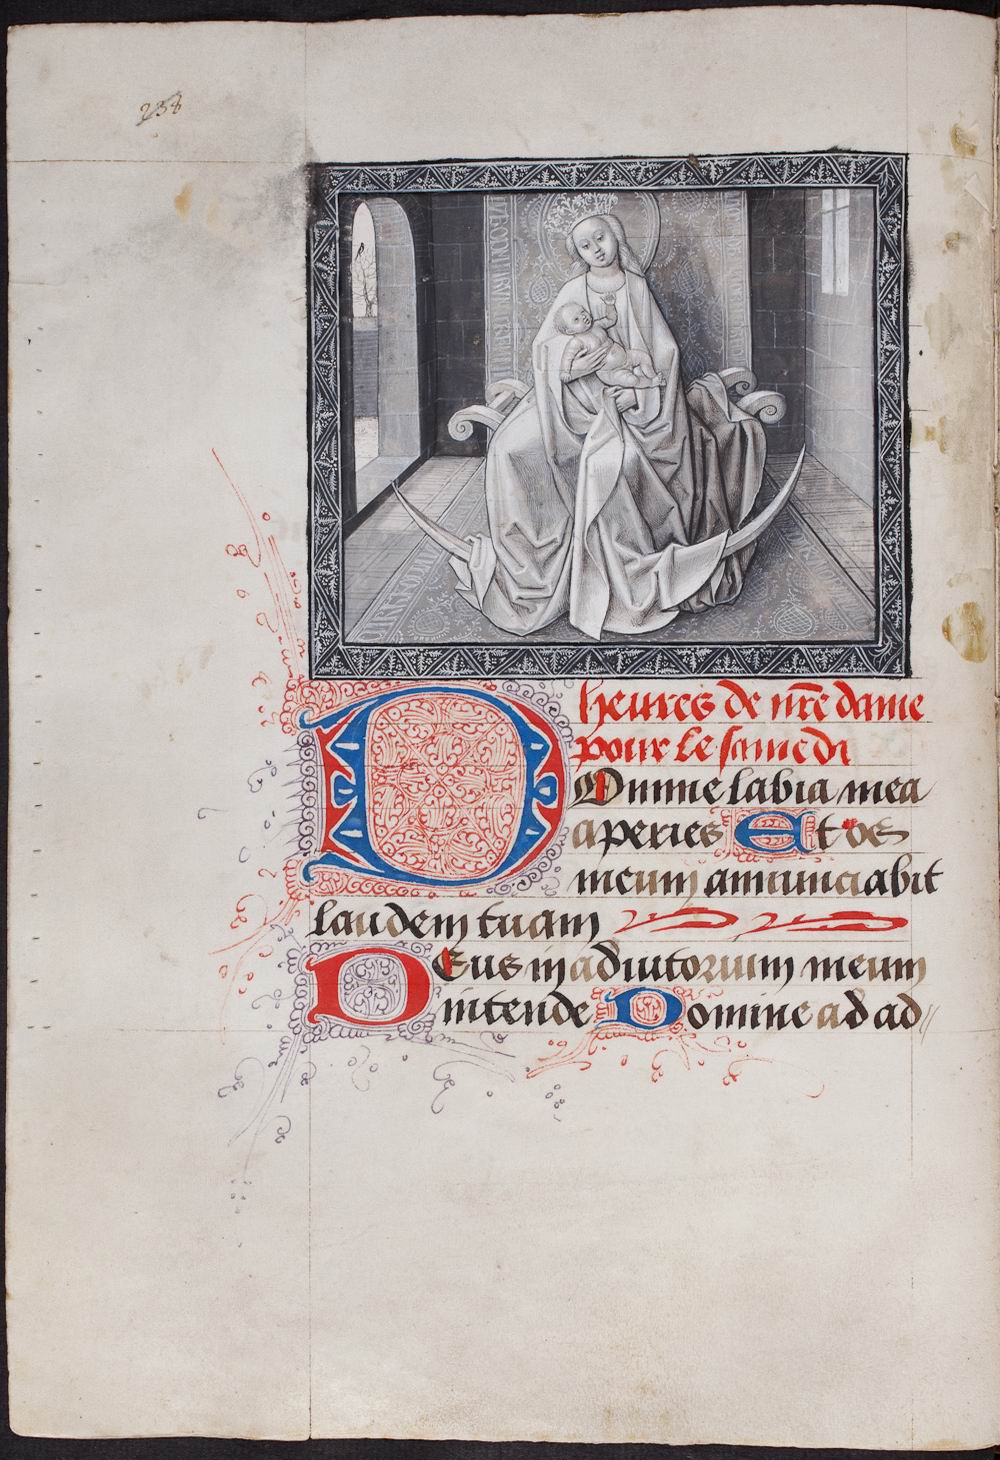 238
heures de nr̃e dame
pour le samedi
Domine labia mea
aperies Et os
meum annunciabit
laudem tuam
DEus in adiutorium meum
intende Domine ad ad//